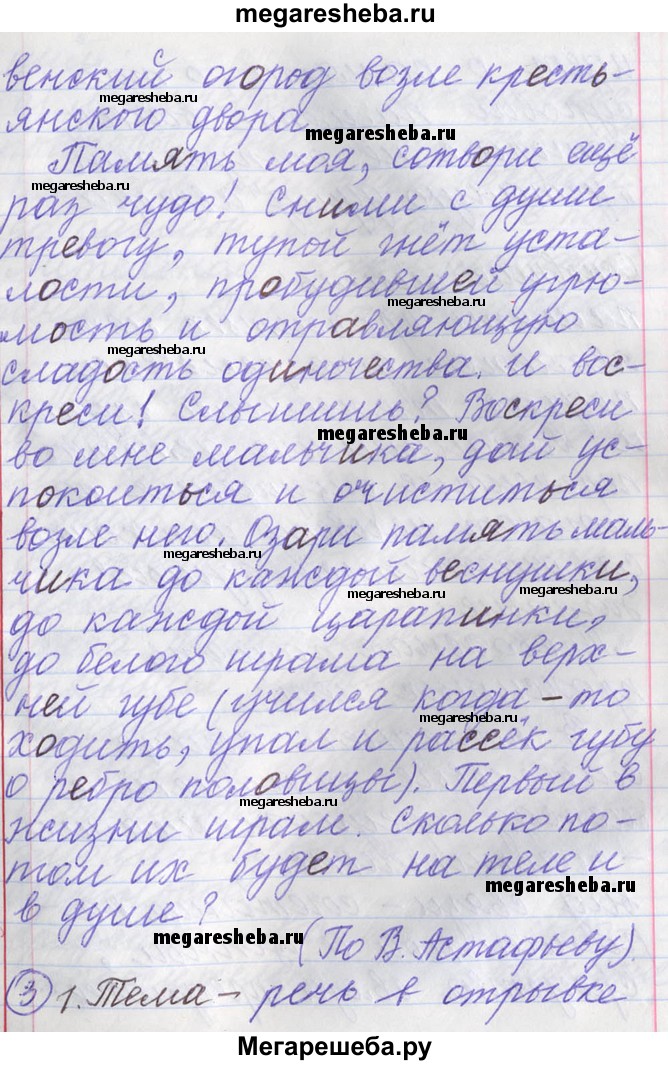 megaresheba.ru
венский огород возле кресть-
megaresheba.ru
янского двора.
megaresheba.ru
Память моя, сотвори ещё
megaresheba.ru
раз чудо! Сними с души
тревогу, тупой гнёт уста-
лости, пробудившей угрю-
megaresheba.ru
мость и отравляющую
megaresheba.ru
сладость одиночества. И вос-
креси! Слышишь? Воскреси
megaresheba.ru
во мне мальчика, дай ус-
покоиться и очиститься
возле него. Озари память маль-
megaresheba.ru
чика до каждой веснушки,
megaresheba.ru
megaresheba.ru
до каждой царапинки,
до белого шрама на верх-
ней губе (учился когда-то
megaresheba.ru
ходить, упал и рассёк губу
о ребро половицы). Первый в
megaresheba.ru
жизни шрам. Сколько по-
том их будет на теле и
megaresheba.ru
в душе?
megaresheba.ru
(По В. Астафьеву).
③ 1. Тема – речь в отрывке
Мегарешеба.ру